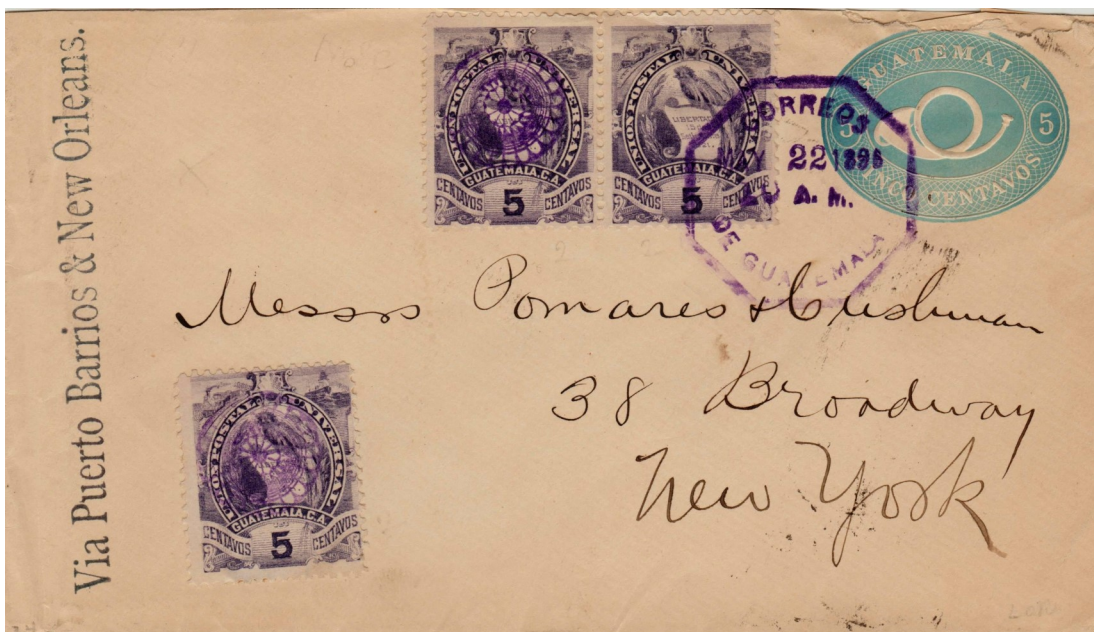 Via Puerto Barrios & New Orleans.
UNION POSTAL UNIVERSAL
GUATEMALA, C.A.
CENTAVOS 5 CENTAVOS
UNION POSTAL UNIVERSAL
LIBERTAD
GUATEMALA, C.A.
CENTAVOS 5 CENTAVOS
GUATEMALA
5 5
CINCO CENTAVOS
CORREOS
MAY 22 1896
A. M.
DE GUATEMALA
Messrs Pomares & Cushman
38 Broadway
New York
UNION POSTAL UNIVERSAL
GUATEMALA, C.A.
CENTAVOS 5 CENTAVOS